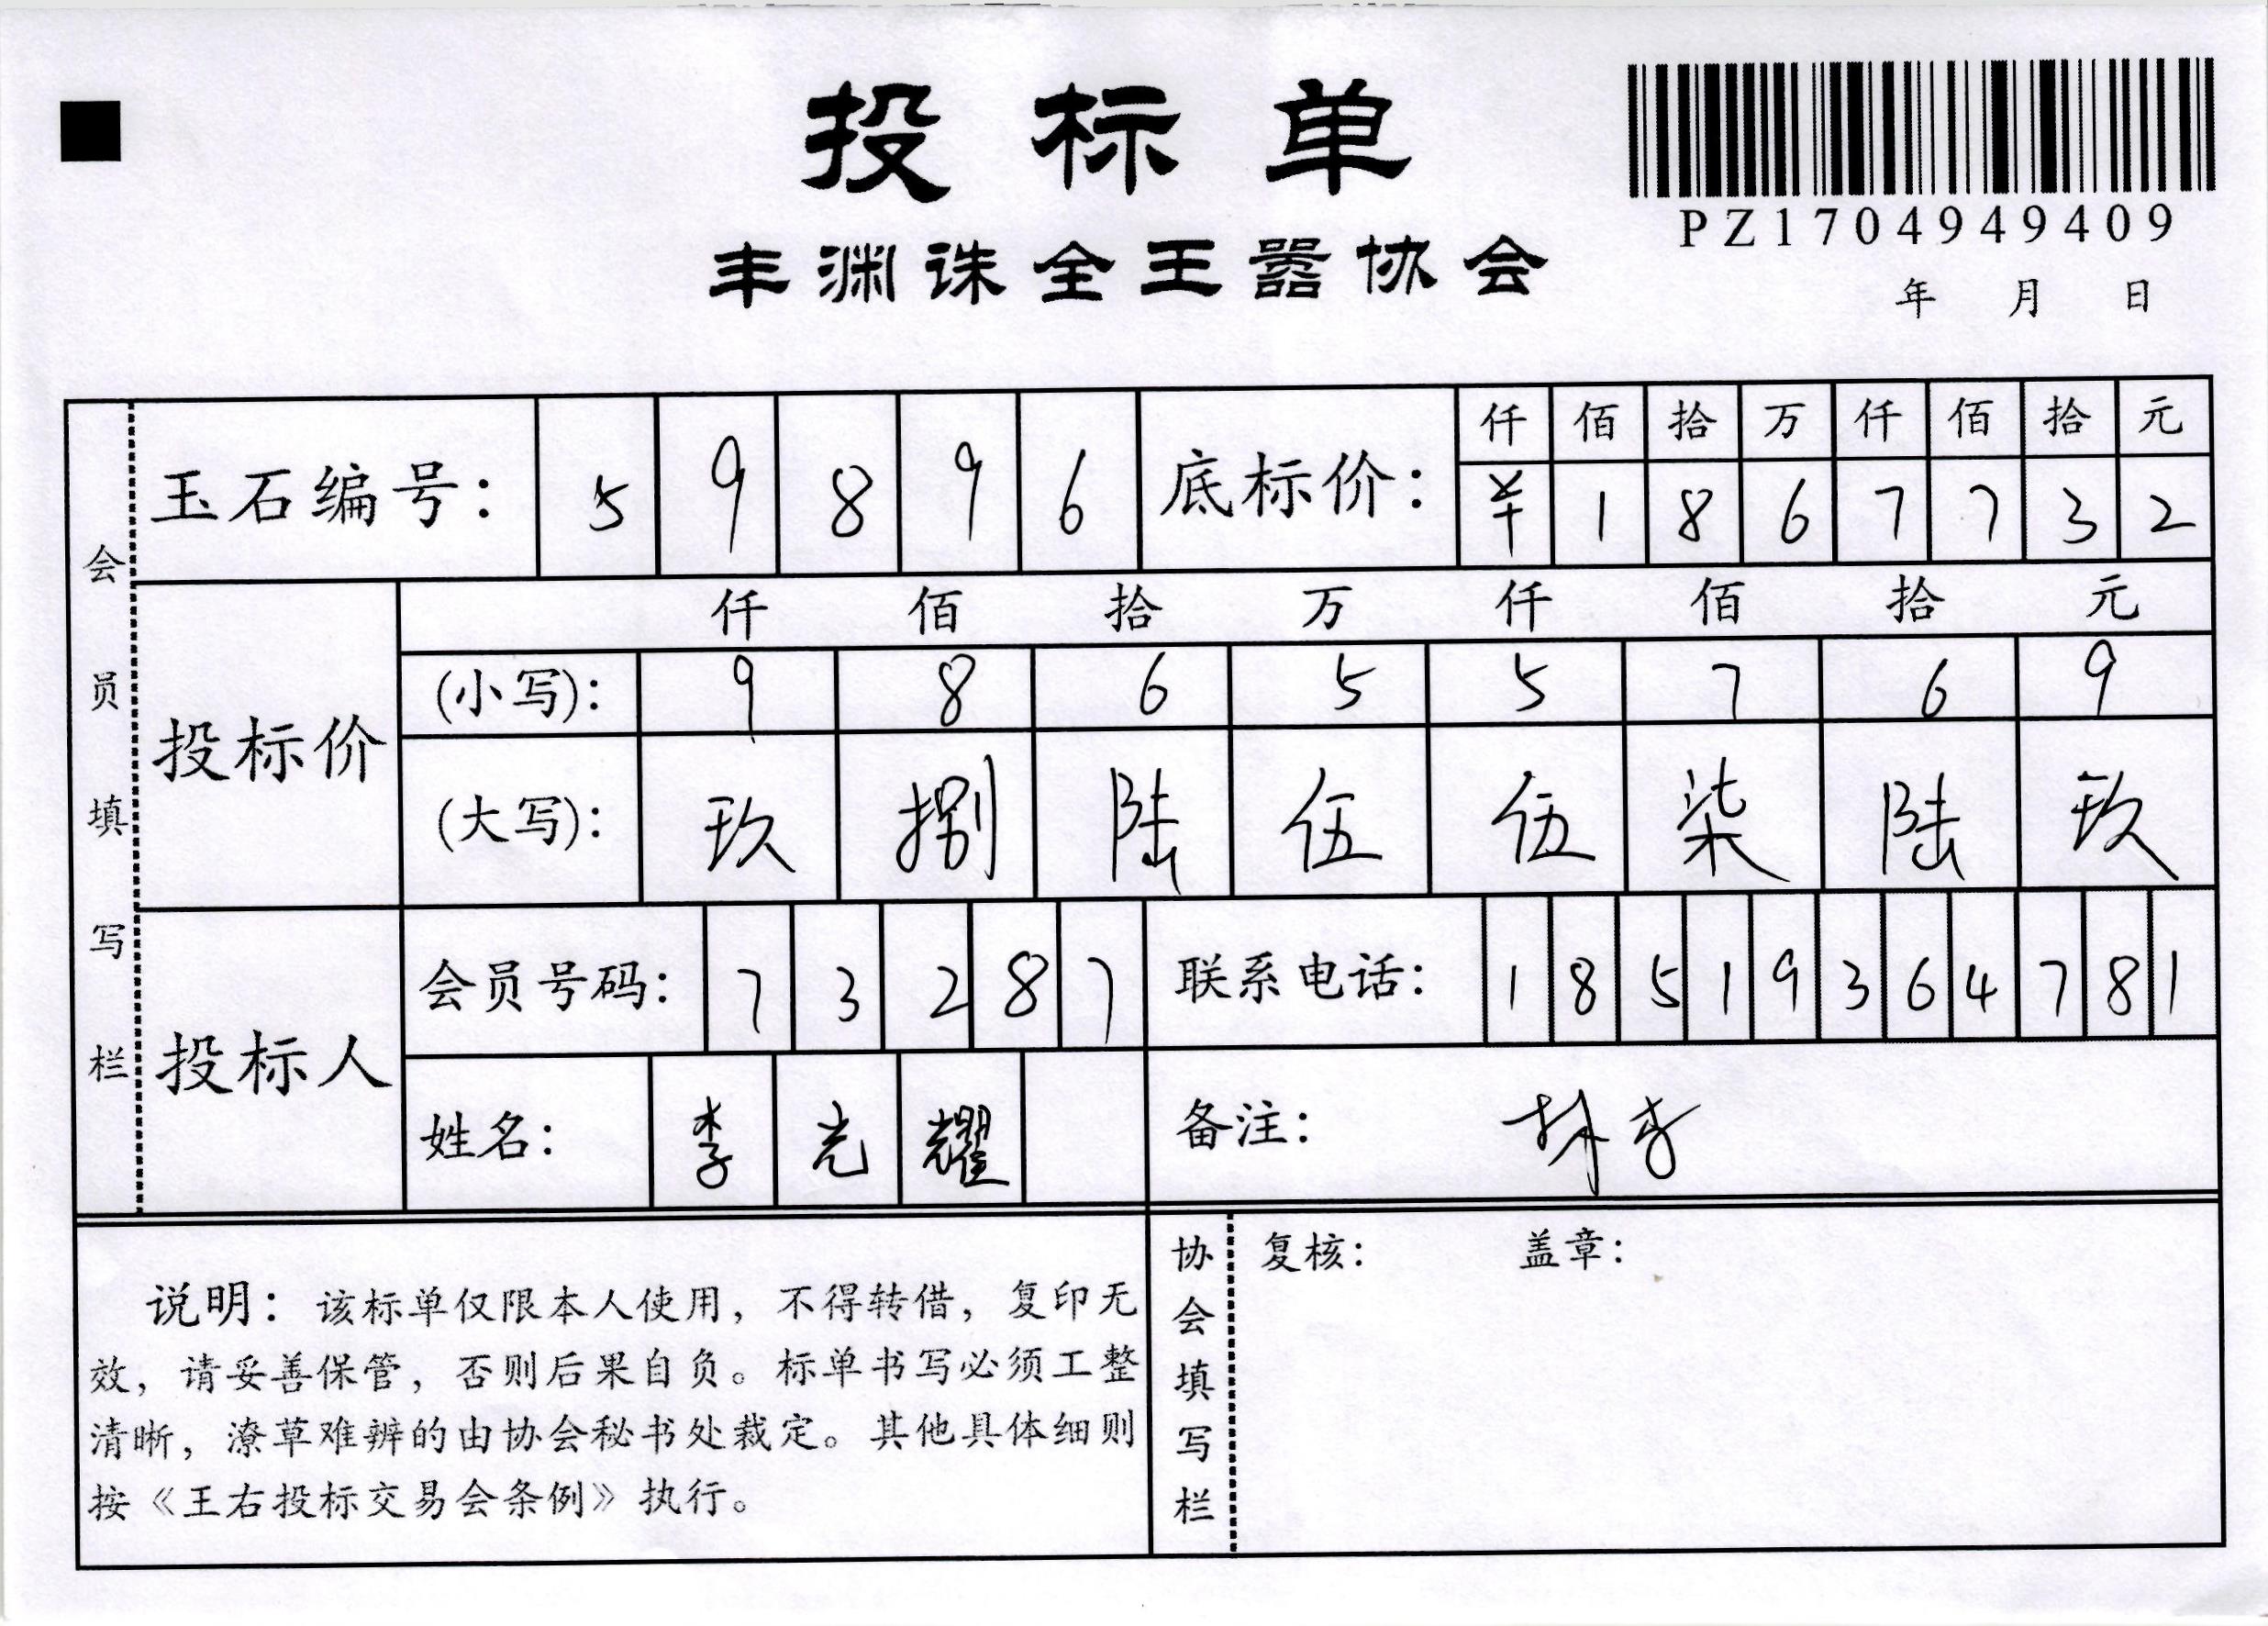 投标单
PZ1704949409
丰渊诛全王嚣协会
年 月 日
会员填写栏
玉石编号： 5 9 8 9 6
底标价： 仟 佰 拾 万 仟 佰 拾 元
¥ 1 8 6 7 7 3 2
投标价
仟 佰 拾 万 仟 佰 拾 元
(小写)： 9 8 6 5 5 7 6 9
(大写)： 玖 捌 陆 伍 伍 柒 陆 玖
投标人
会员号码： 7 3 2 8 7
联系电话： 1 8 5 1 9 3 6 4 7 8 1
姓名： 李 光 耀
备注：
说明：该标单仅限本人使用，不得转借，复印无
效，请妥善保管，否则后果自负。标单书写必须工整
清晰，潦草难辨的由协会秘书处裁定。其他具体细则
按《王右投标交易会条例》执行。
协会填写栏
复核： 盖章：